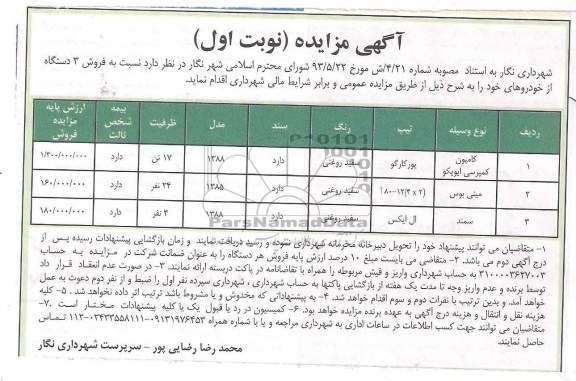 آگهی مزایده (نوبت اول)
شهرداری نگار به استناد مصوبه شماره ۴/۲۱/ش مورخ ۹۳/۵/۲۲ شورای محترم اسلامی شهر نگار در نظر دارد نسبت به فروش ۳ دستگاه
از خودروهای خود را به شرح ذیل از طریق مزایده عمومی و برابر شرایط مالی شهرداری اقدام نماید.
ردیف نوع وسیله تیپ رنگ سند مدل ظرفیت بیمه شخص ثالث ارزش پایه مزایده فروش
۱ کامیون کمپرسی ایویکو یورکارگو سفید روغنی دارد ۱۳۸۸ ۱۷ تن دارد ۱/۳۰۰/۰۰۰/۰۰۰
۲ مینی بوس سفید روغنی دارد ۱۳۸۵ ۲۴ نفر دارد ۱۶۰/۰۰۰/۰۰۰
۳ سمند ال ایکس سفید روغنی دارد ۱۳۸۸ ۴ نفر دارد ۱۸۰/۰۰۰/۰۰۰
ParsNamadData
۱- متقاضیان می توانند پیشنهاد خود را تحویل دبیرخانه محرمانه شهرداری نموده و رسید دریافت نمایند و زمان بازگشایی پیشنهادات رسیده پس از
درج آگهی دوم می باشد. ۲- متقاضی می بایست مبلغ ۱۰ درصد ارزش پایه فروش هر دستگاه را به عنوان ضمانت شرکت در مزایده به حساب
۳۱۰۰۰۰۳۶۲۷۰۰۳ به حساب شهرداری واریز و فیش مربوطه را همراه با تقاضانامه در پاکت دربسته ارائه نمایند. ۳- در صورت عدم انعقاد قرار داد
توسط برنده و عدم واریز وجه تا مدت یک هفته از بازگشایی پاکتها به حساب شهرداری ، شهرداری سپرده نفر اول را ضبط و از نفر دوم دعوت به عمل
خواهد آمد. و بدین ترتیب با نفرات دوم و سوم اقدام خواهد شد. ۴- به پیشنهاداتی که مخدوش و یا مشروط باشد ترتیب اثر داده نخواهد شد . ۵- کلیه
هزینه نقل و انتقال و هزینه درج آگهی به عهده برنده مزایده خواهد بود. ۶- کمیسیون در رد یا قبول یک یا کلیه پیشنهادات مختار است .۷-
متقاضیان می توانند جهت کسب اطلاعات در ساعات اداری به شهرداری مراجعه و یا با شماره همراه ۰۹۱۳۱۹۷۶۴۵۳-۰۳۴۳۳۵۵۸۱۱۱-۱۱۲ تماس
حاصل نمایند.
محمد رضا رضایی پور - سرپرست شهرداری نگار